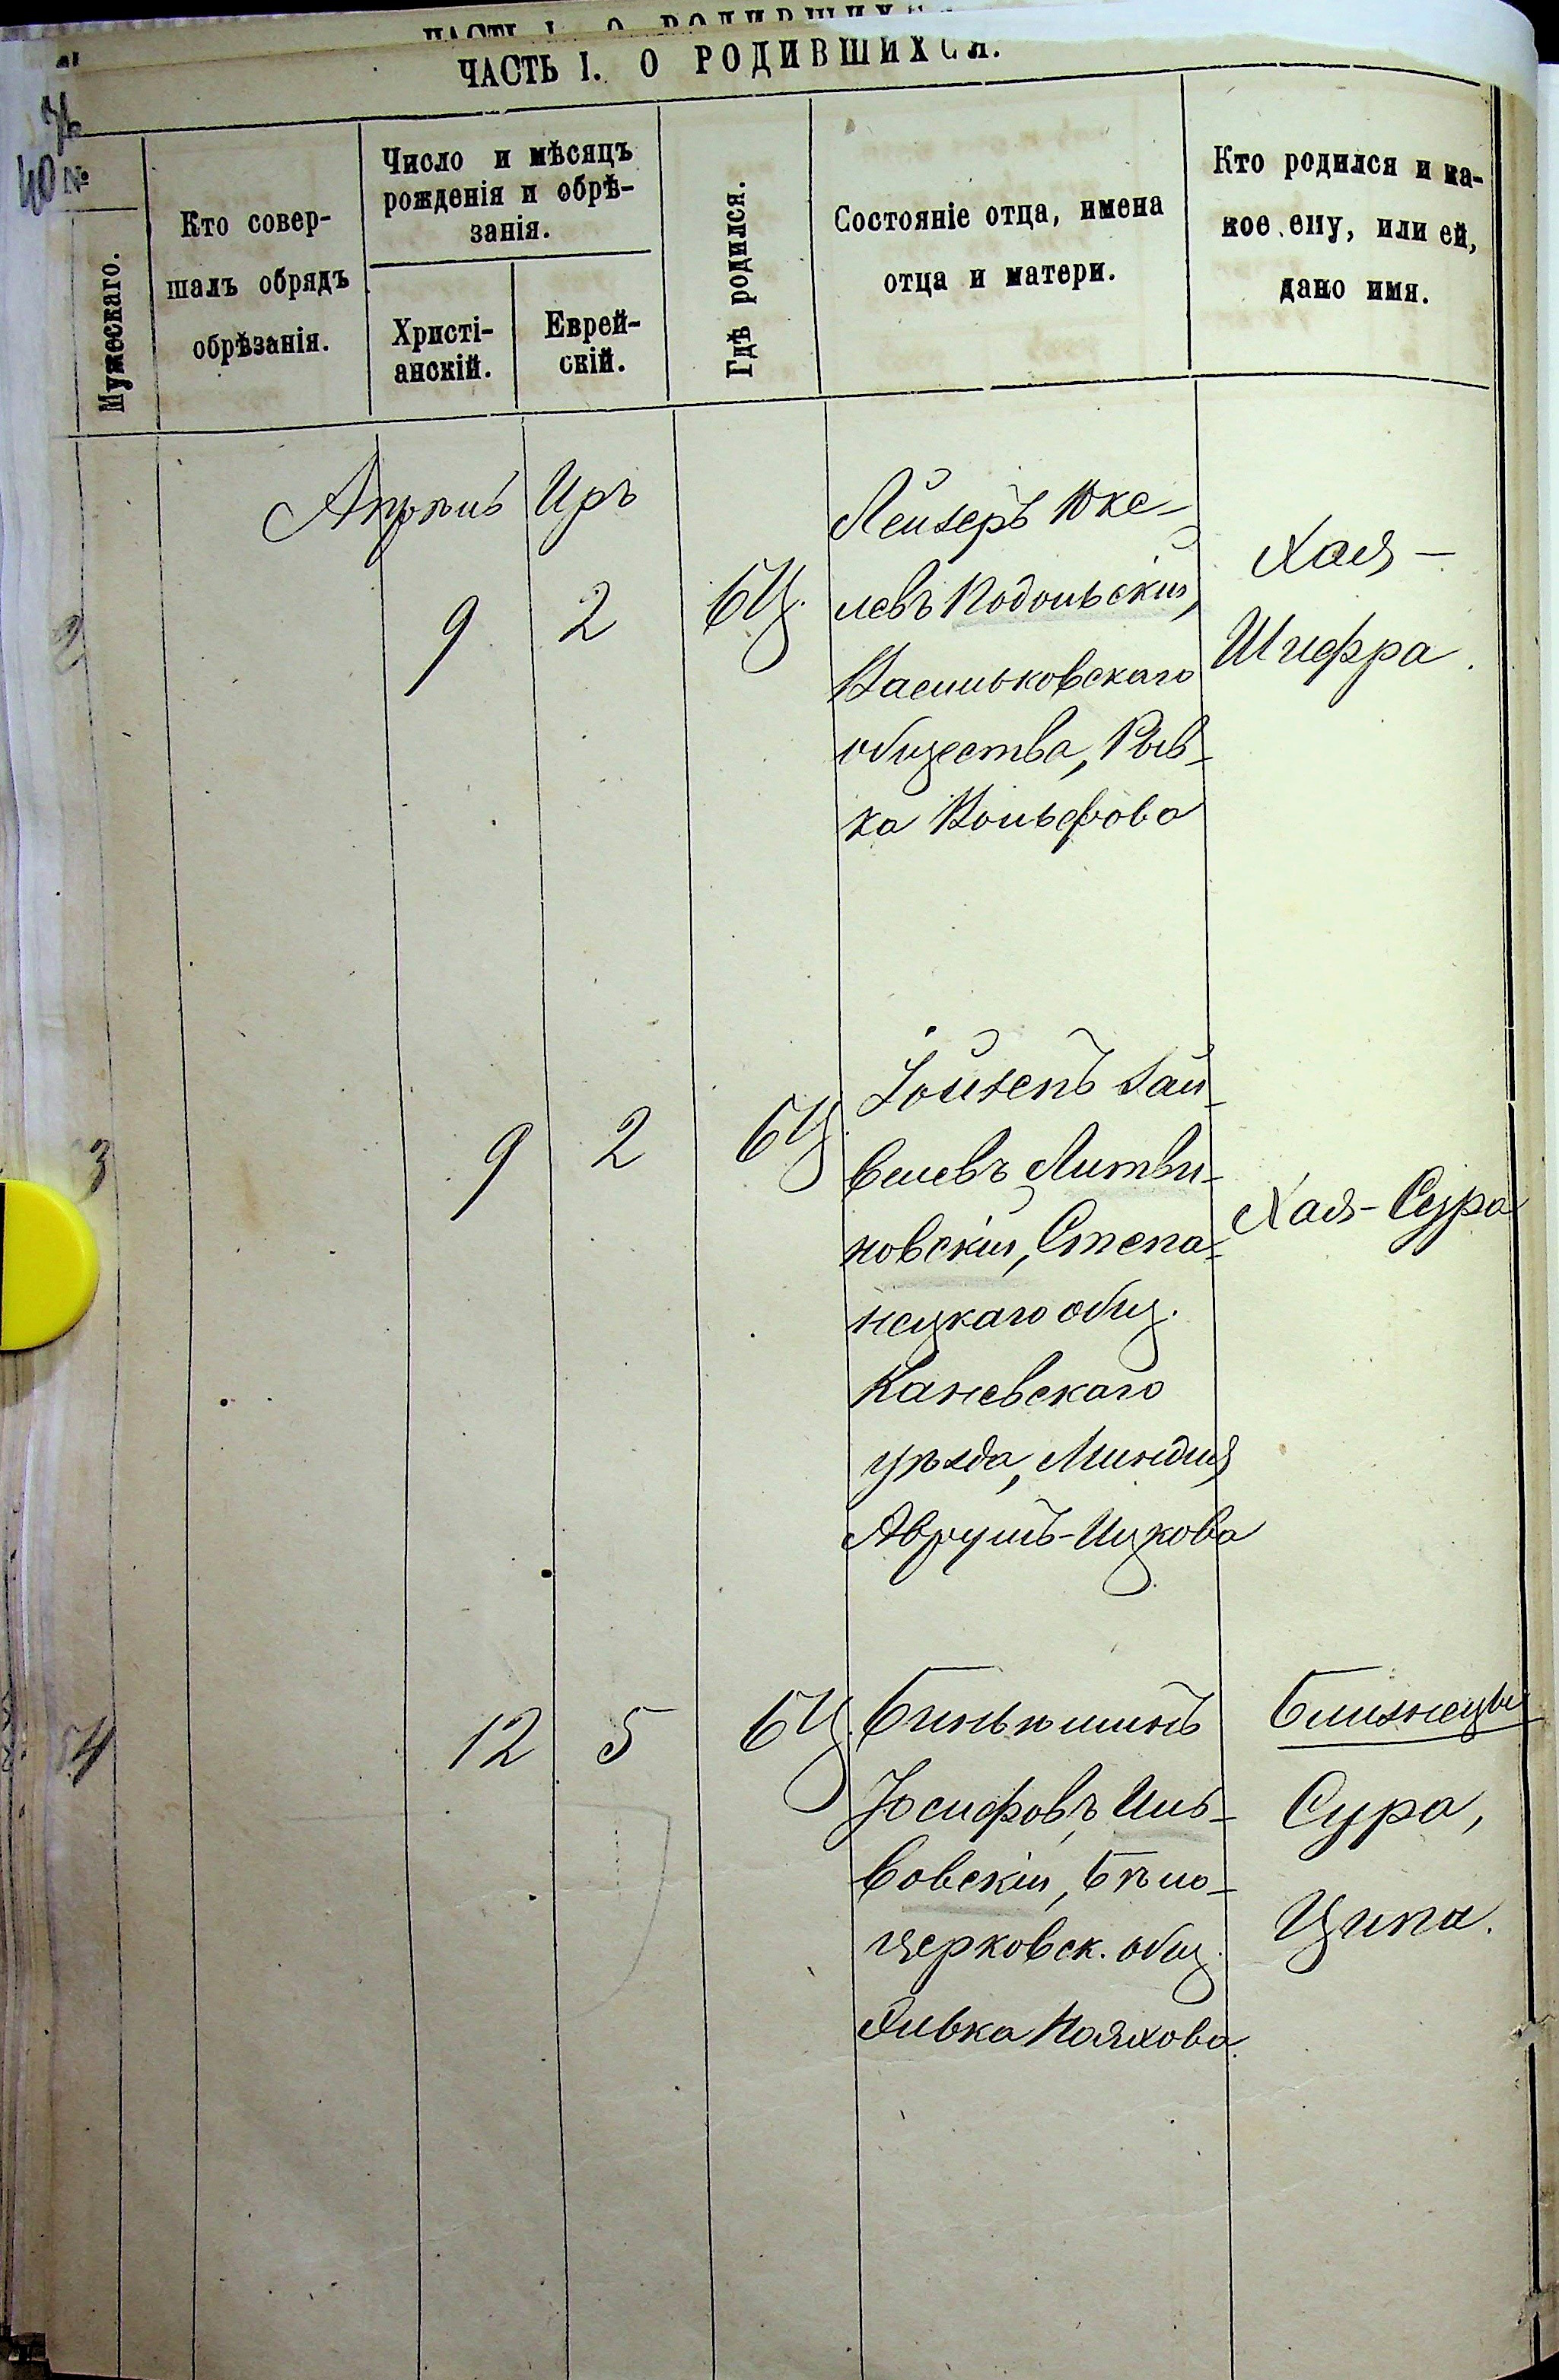 ЧАСТЬ I. О РОДИВШИХСЯ.
40
№
Мужескаго.
Кто совер-
шалъ обрядъ
обрѣзанія.
Число и мѣсяцъ
рожденія и обрѣ-
занія.
Христі-
анскій.
Еврей-
скій.
Гдѣ родился.
Состояніе отца, имена
отца и матери.
Кто родился и ка-
кое ему, или ей,
дано имя.
Апрѣль Иръ
2
9 2 БЦ.
Лейзеръ Юке-
левъ Подольскій,
Васильковскаго
общества, Рыв-
ка Вольфова
Хая-
Шифра.
3
9 2 БЦ.
Іойзепъ Зай-
велевъ Литви-
новскій, Степа-
нецкаго общ.
Каневскаго
уѣзда, Миндля
Аврумъ-Ицкова
Хая-Сура
54
12 5 БЦ.
Биньюминъ
Іосифовъ Иль-
вовскій, Бѣло-
церковск. общ.
Ривка Нояхова.
Близнецы
Сура,
Ципа.